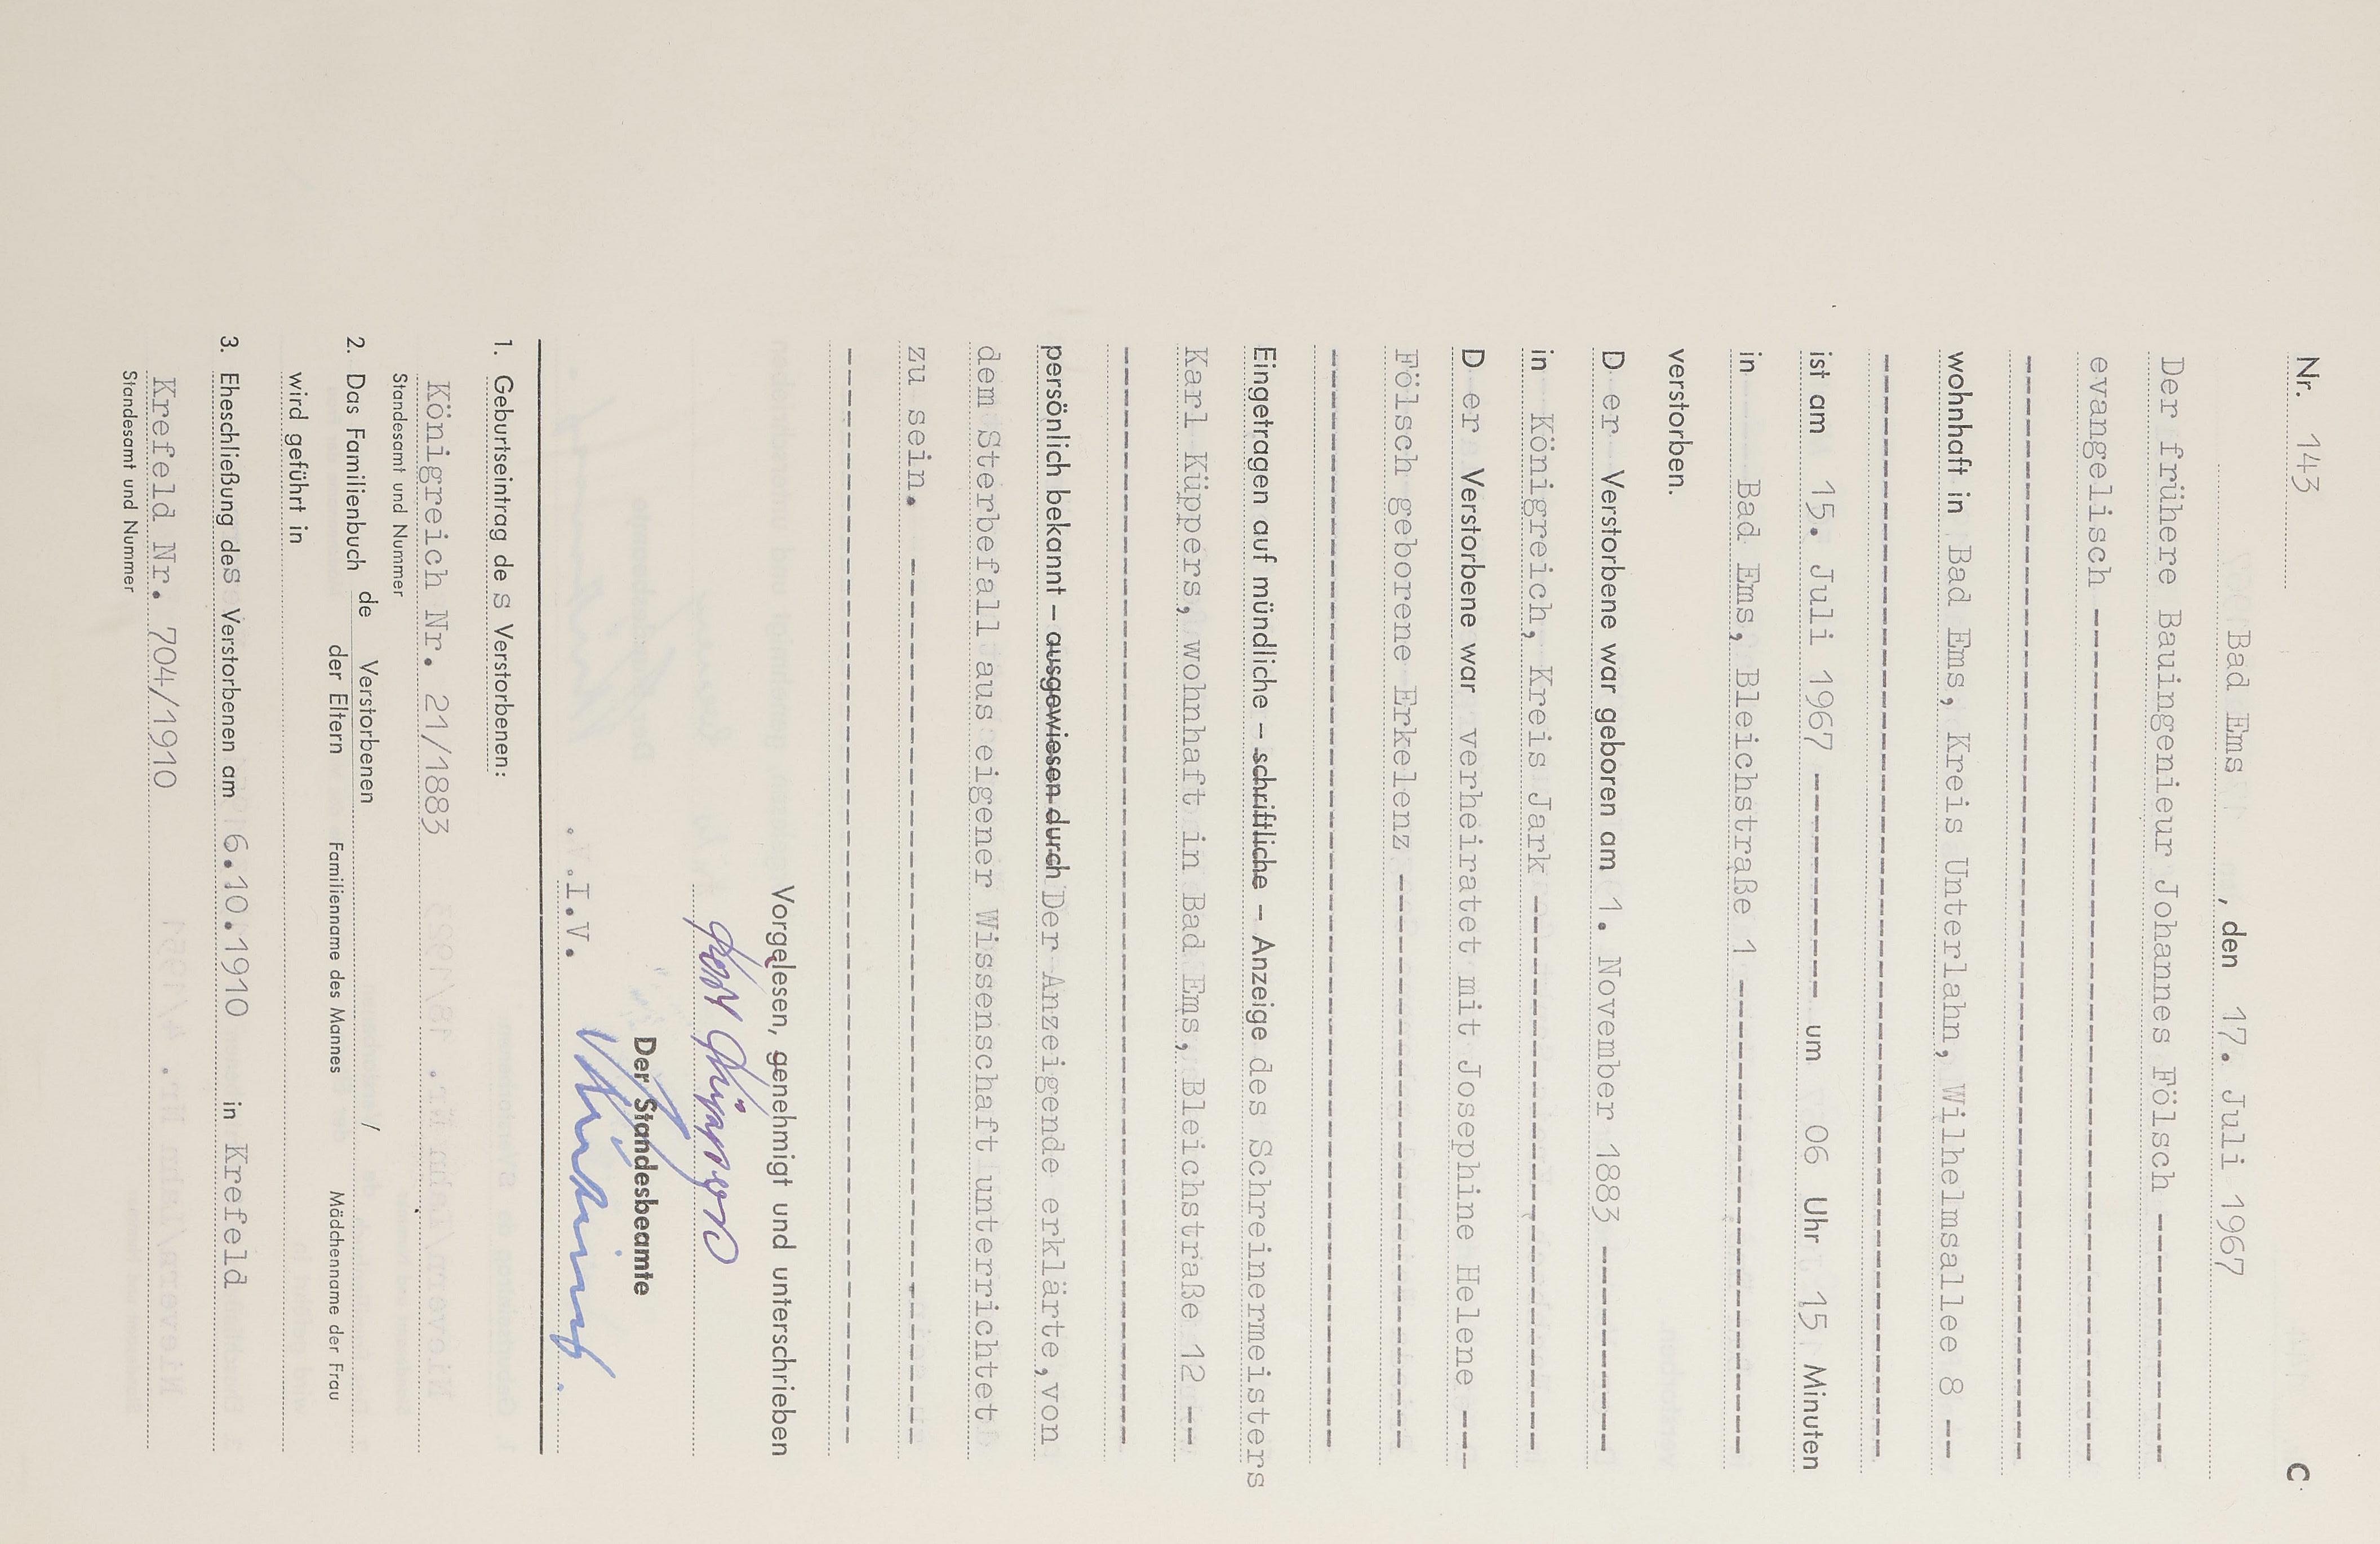 Nr. 143
C
Bad Ems, den 17. Juli 1967
Der frühere Bauingenieur Johannes Fölsch
evangelisch
wohnhaft in Bad Ems, Kreis Unterlahn, Wilhelmsallee 8
ist am 15. Juli 1967 um 06 Uhr 15 Minuten
in Bad Ems, Bleichstraße 1
verstorben.
D er Verstorbene war geboren am 1. November 1883
in Königreich, Kreis Jark
D er Verstorbene war verheiratet mit Josephine Helene
Fölsch geborene Erkelenz
Eingetragen auf mündliche – schriftliche – Anzeige des Schreinermeisters
Karl Küppers, wohnhaft in Bad Ems, Bleichstraße 12
persönlich bekannt – ausgewiesen durch Der Anzeigende erklärte, von
dem Sterbefall aus eigener Wissenschaft unterrichtet
zu sein.
Vorgelesen, genehmigt und unterschrieben
Der Standesbeamte
I.V.
1. Geburtseintrag de s Verstorbenen:
Königreich Nr. 21/1883
Standesamt und Nummer
2. Das Familienbuch de Verstorbenen /
der Eltern Familienname des Mannes Mädchenname der Frau
wird geführt in
3. Eheschließung des Verstorbenen am 6.10.1910 in Krefeld
Krefeld Nr. 704/1910
Standesamt und Nummer